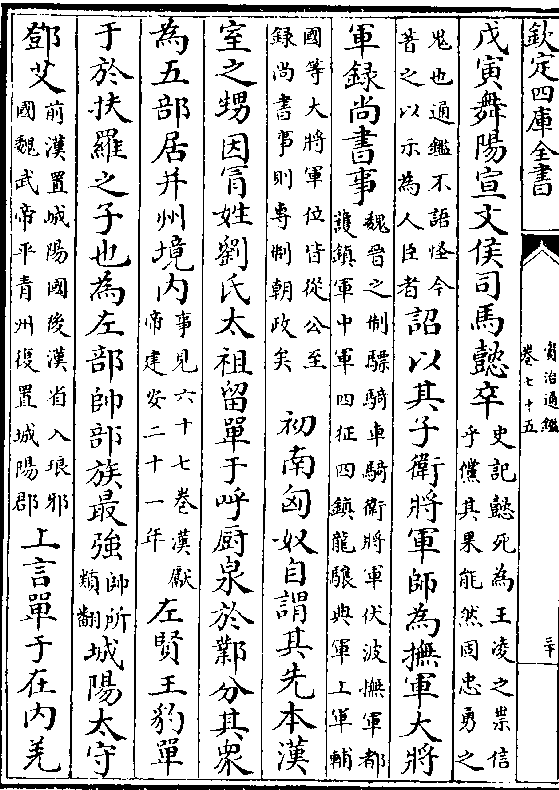 欽定四庫全書
資治通鑑
卷七十五
三十
戊寅舞陽宣文侯司馬懿卒史記懿死為王凌之祟信乎儻其果能然固忠勇之
鬼也通鑑不語怪今著之以示為人臣者詔以其子衛將軍師為撫軍大將
軍録尚書事魏晉之制驃騎車騎衛將軍伏波撫軍都護鎮軍中軍四征四鎮龍驤典軍上軍輔
國等大將軍位皆從公至録尚書事則專制朝政矣 初南匈奴自謂其先本漢
室之甥因冐姓劉氏太祖留單于呼厨泉於鄴分其衆
為五部居并州境内事見六十七卷漢獻帝建安二十一年左賢王豹單
于於扶羅之子也為左部帥部族最強帥所類翻城陽太守
鄧艾前漢置城陽國後漢省入琅邪國魏武帝平青州復置城陽郡上言單于在内羌